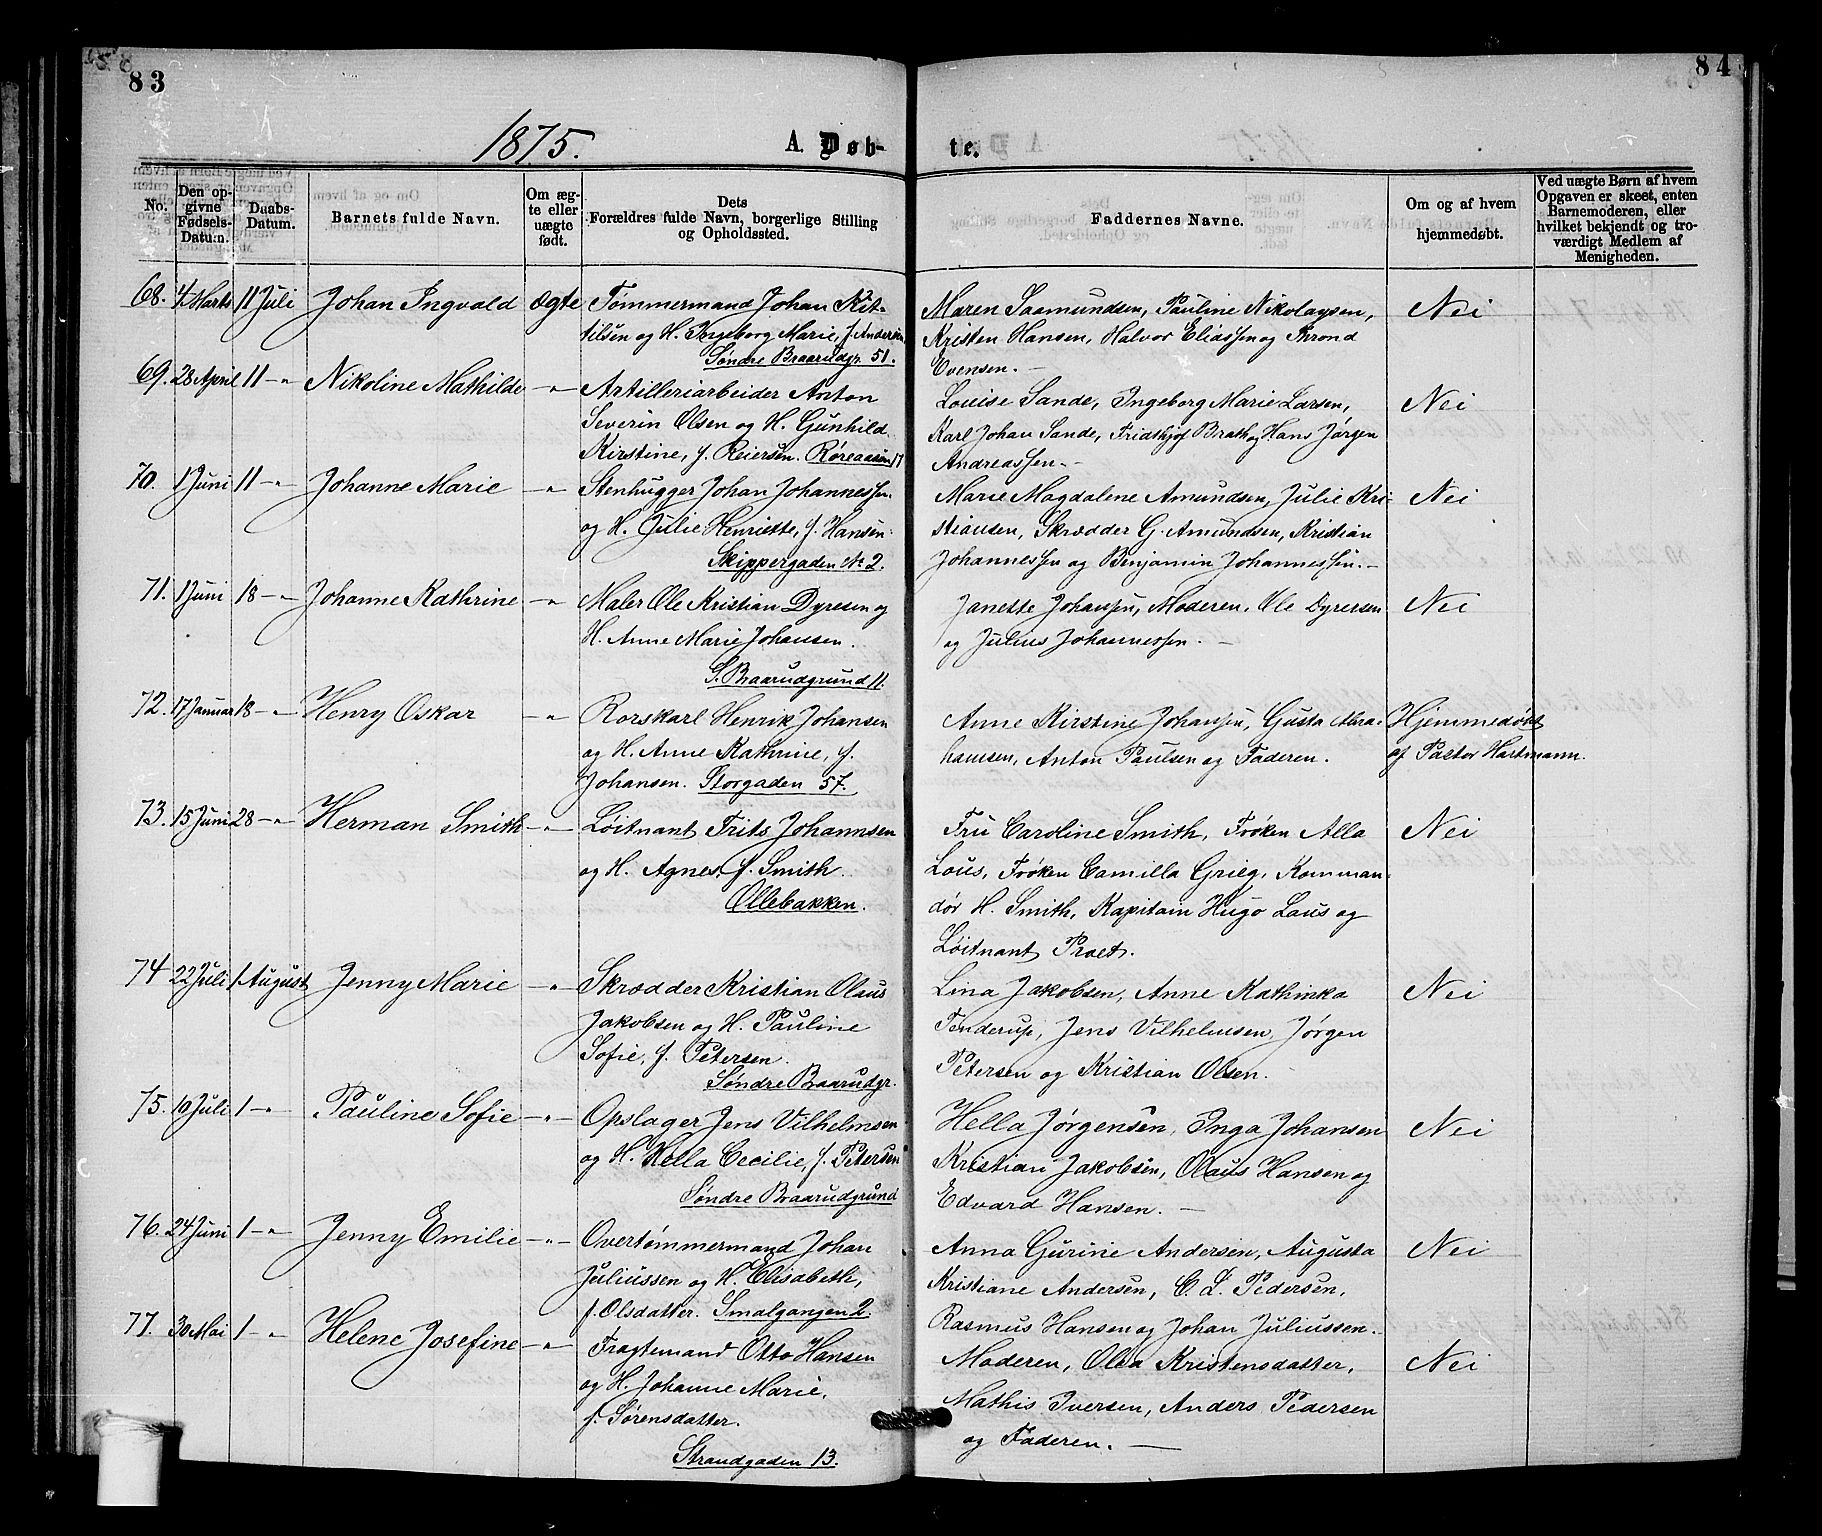 83
84
1875.
A. Døb-
te.
No.
Den op-
givne
Fødsels-
Datum.
Daabs-
Datum.
Barnets fulde Navn.
Om æg-
te eller
uægte
født.
Dets
Forældres fulde Navn, borgerlige Stilling
og Opholdssted.
Faddernes Navne.
Om og af hvem
hjemmedøbt.
Ved uægte Børn af hvem
Opgaven er skeet, enten
Barnemoderen, eller
hvilket bekjendt og tro-
værdigt Medlem af
Menigheden.
68. 4 Marts 11 Juli Johan Ingvald ægte Tømmermand Johan Kit-
tilsen og H. Ingeborg Marie, f. Andersen
Søndre Braarudgr. 51.
Maren Saamundsen, Pauline Nikolaysen, Nei
Kristen Hansen, Halvor Eliassen og Thrond
Evensen. —
69. 28 April 11 — " Nikoline Mathilde — " Artilleriarbeider Anton
Severin Olsen og H. Gunhild
Kirstine, f. Reiersen. Røreaasen 17
Louise Sande, Ingeborg Marie Larsen, Nei
Karl Johan Sande, Fridthjof Brath og Hans Jørgen
Andreassen. —
70. 1 Juni 11 — " Johanne Marie — " Stenhugger Johan Johannessen
og H. Julie Henriette, f. Hansen
Skippergaden No 2.
Marie Magdalene Amundsen, Julie Kri- Nei
stiansen, Skrædder G. Amundsen, Kristian
Johannessen og Benjamin Johannessen. —
71. 1 Juni 18 — " Johanne Kathrine — " Maler Ole Kristian Dyresen og
H. Anne Marie Johansen.
S. Braarudgrund 11.
Janette Johansen, Moderen, Ole Dyresen Nei
og Julius Johannessen. —
72. 17 Januar 18 — " Henry Oskar — " Rorskarl Henrik Johansen
og H. Anne Kathrine, f.
Johansen. Storgaden 57.
Anne Kirstine Johansen, Gusta Abra- Hjemmedøbt
hamsen, Anton Paulsen og Faderen. af Pastor Hartmann.
73. 15 Juni 28 — " Herman Smith — " Løitnant Frits Johannsen
og H. Agnes, f. Smith.
Ollebakken.
Fru Caroline Smith, Frøken Alla Nei
Lous, Frøken Camilla Grieg, Komman-
dør H. Smith, Kapitain Hugo Laus og
Løitnant Praet.
74 22 Juli 1 August Jenny Marie — " Skrædder Kristian Olaus
Jakobsen og H. Pauline
Sofie, f. Petersen.
Søndre Braarudgr.
Lina Jakobsen, Anne Kathinka Nei
Tenderup, Jens Vilhelmsen, Jørgen
Petersen og Kristian Olsen. —
75. 10 Juli 1 — " Pauline Sofie — " Opslager Jens Vilhelmsen
og H. Hella Cecilie, f. Petersen
Søndre Braarudgrund
Hella Jørgensen, Inga Johansen Nei
Kristian Jakobsen, Olaus Hansen og
Edvard Hansen. —
76. 24 Juni 1 — " Jenny Emilie — " Overtømmermand Johan
Juliussen og H. Elisabeth,
f. Olsdatter. Smalgangen 2.
Anna Gurine Andersen, Augusta Nei
Kristiane Andersen, C. L. Pedersen,
Rasmus Hansen og Johan Juliussen.
77. 30 Mai 1 — " Helene Josefine — " Fragtemand Otto Hansen
og H. Johanne Marie,
f. Sørensdatter.
Strandgaden 13.
Moderen, Olea Kristensdatter, Nei
Mathis Iversen, Anders Pedersen
og Faderen. —